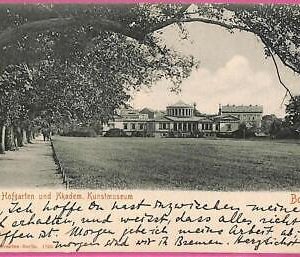 Hofgarten und Akadem. Kunstmuseum Bo
Ich hoffe Du hast inzwischen meine
erhalten, und weisst, dass alles richt
offen ist. Morgen gebe ich meine Arbeit ab
morgen sind wir in Bremen. Herzlich
Berlin.